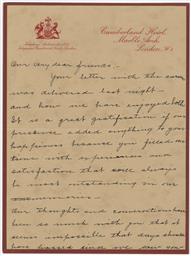 Cumberland Hotel,
Marble Arch,
London, W.1.
Our very dear friends-
Your letter with the
was delivered last night-
and how we have enjoyed both.
It is a great gratification if our
presence added anything to your
happiness because you filled our
time with supersensuous
satisfaction that will always
be most outstanding in our
memories-
Our thoughts and conversation have
been so much with you that it
seems impossible that days should
have passed since we saw you